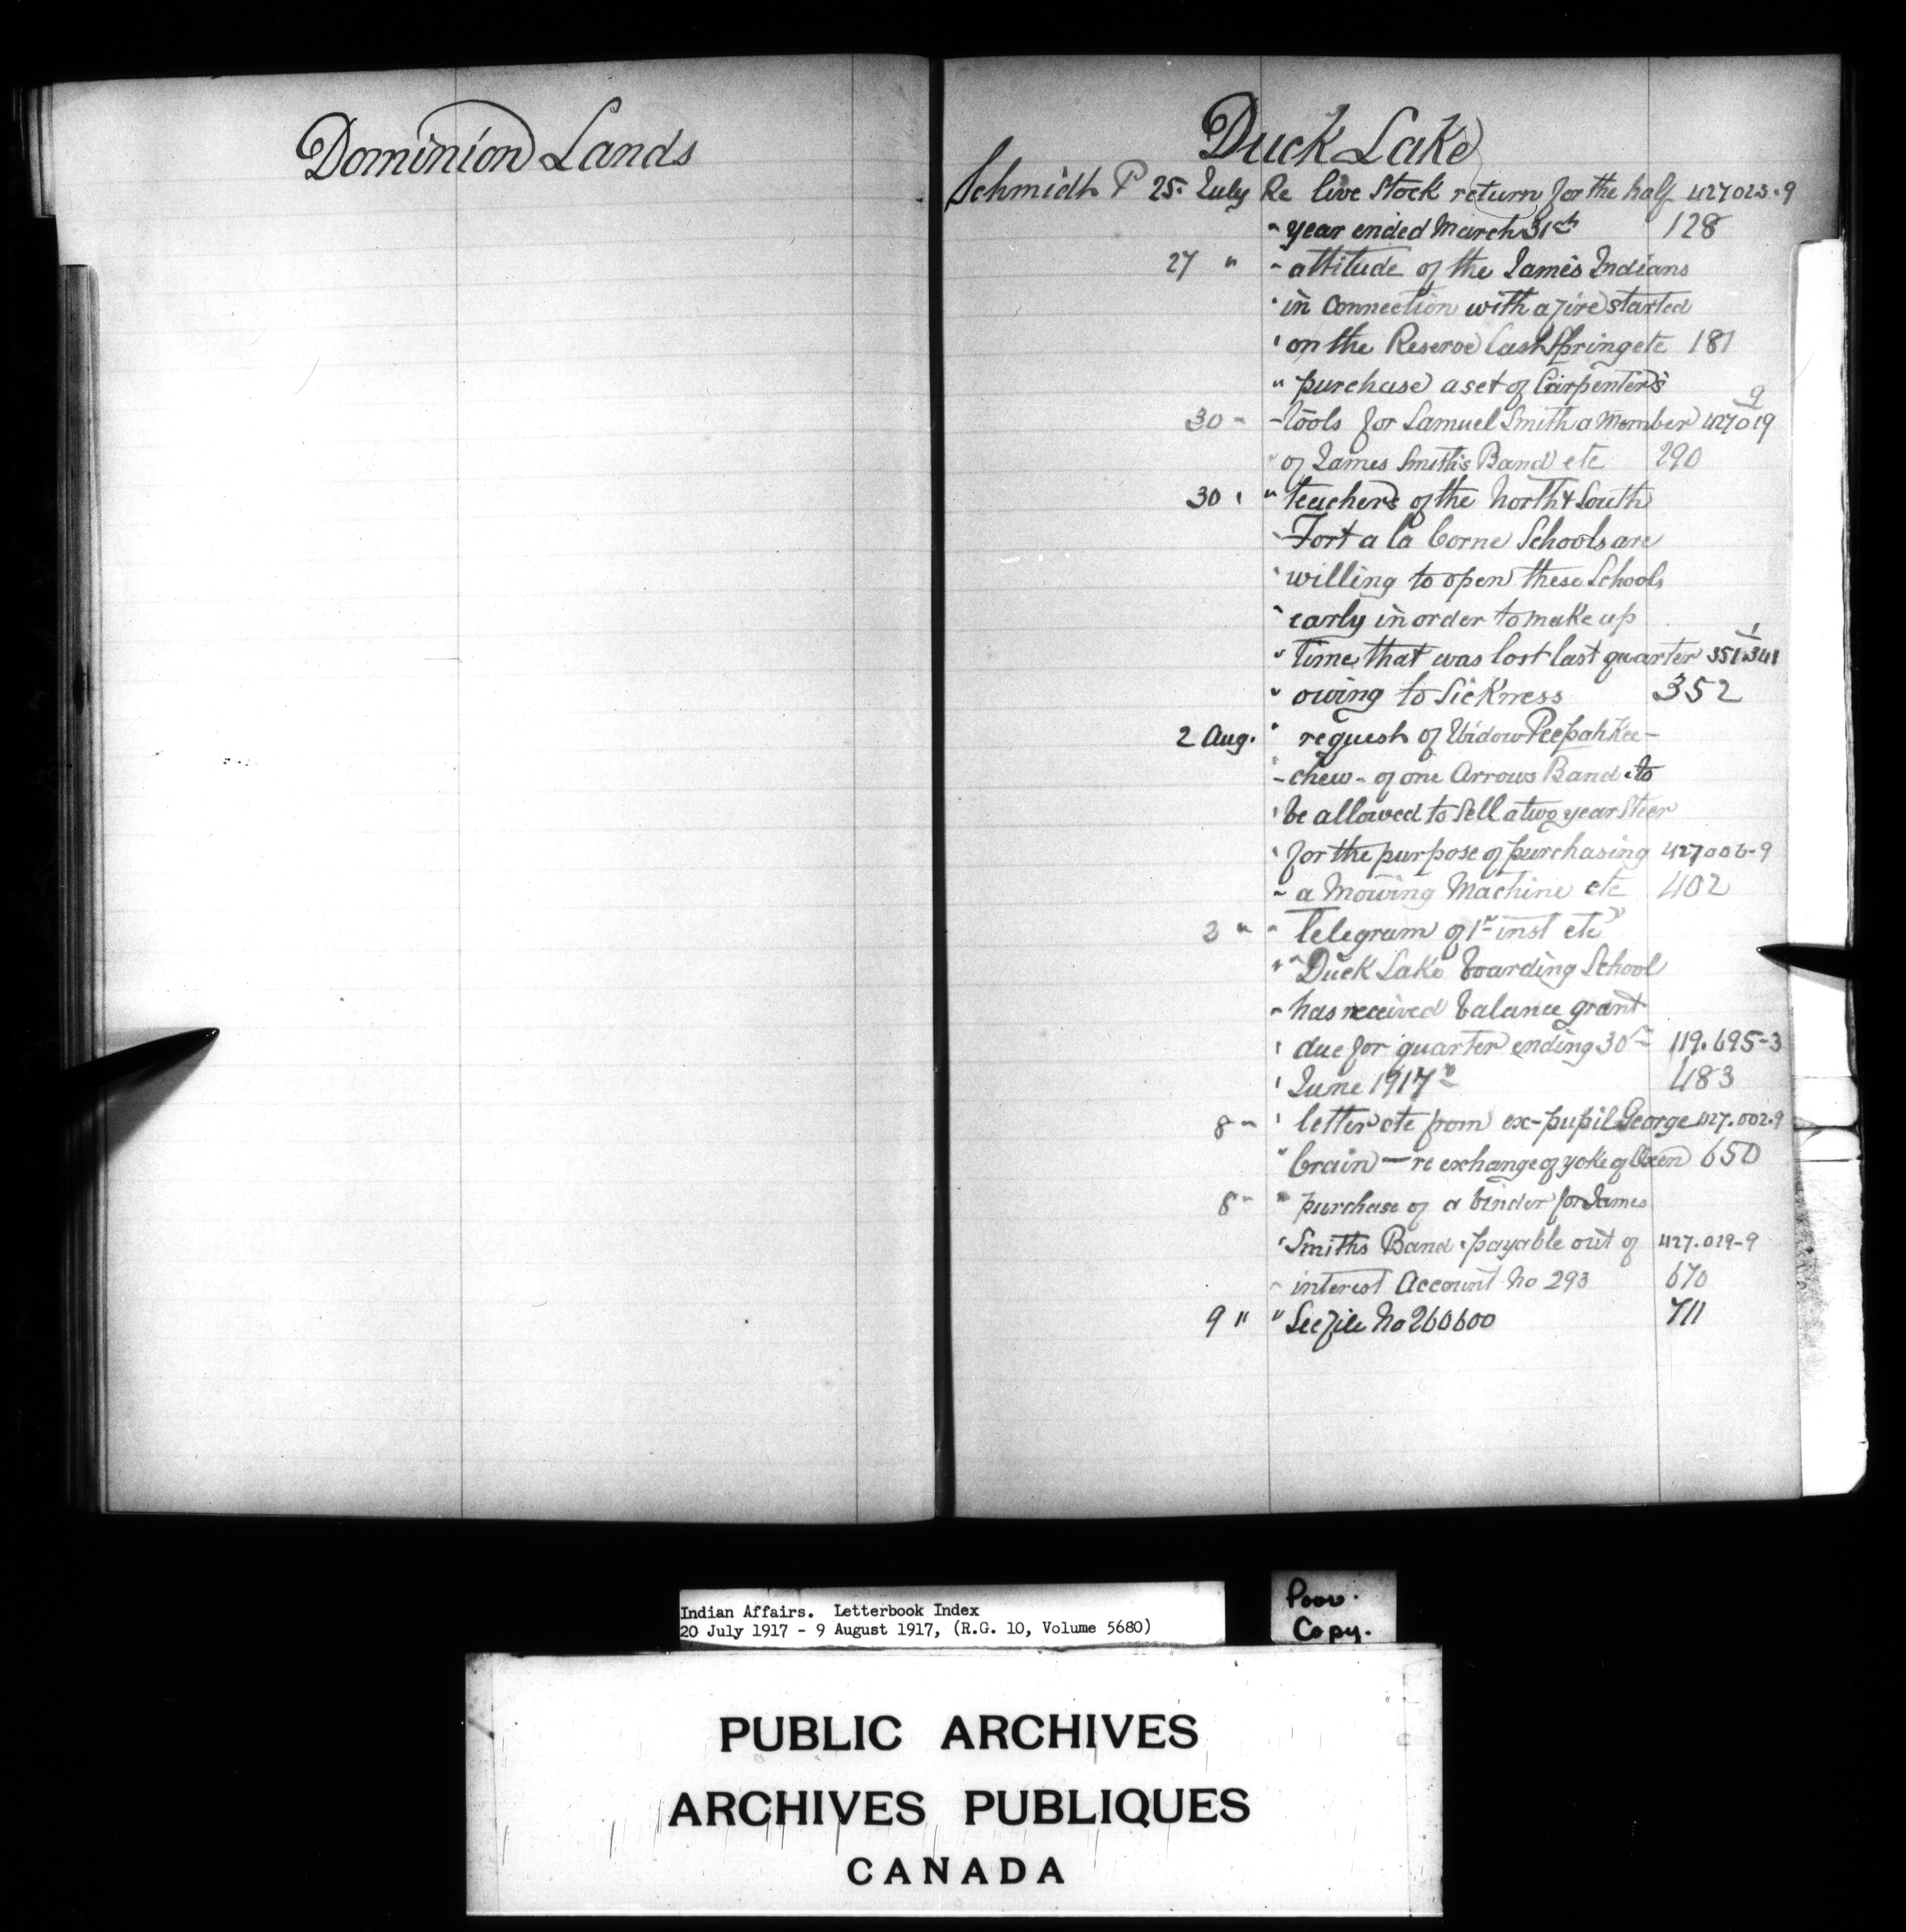 Dominion Lands
Duck Lake
Schmidt P 25. July Re live Stock return for the half 427023-9
" year ended March 31st 128
27 " " attitude of the James Indians
" in connection with a fire started
" on the Reserve last Spring etc 181
" purchase a set of Carpenter's
9
30 " " tools for Samuel Smith a Member 427019
" of James Smith's Band etc 290
30 " " teachers of the North & South
" Fort a la Corne Schools are
" willing to open these Schools
" early in order to make up
1
" time that was lost last quarter 351.341
" owing to Sickness 352
2 Aug. " request of Widow Peepahkee-
- chew - of one Arrows Band to
" be allowed to Sell a two year Steer
" for the purpose of purchasing 427006-9
" a Mowing Machine etc 402
3 " " Telegram of 1st inst etc
" Duck Lake boarding School
" has received balance grant
" due for quarter ending 30th 119.695-3
" June 1917 483
8 " " letter etc from ex-pupil George 427.002-9
" Crain - re exchange of yoke of Oxen 650
8 " " purchase of a binder for James
" Smiths Band. payable out of 427.019-9
" interest Account No 293 670
9 " " See file No 260600 711
Indian Affairs. Letterbook Index
20 July 1917 - 9 August 1917, (R.G. 10, Volume 5680)
Poor.
Copy.
PUBLIC ARCHIVES
ARCHIVES PUBLIQUES
CANADA